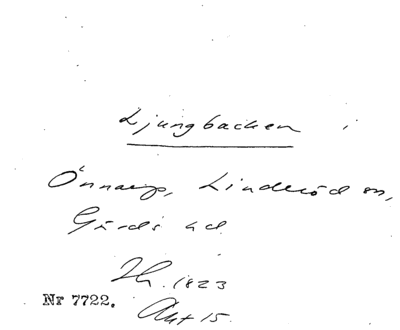 Ljungbacken i
Önnarp, Linderöd sn,
Gärds hd
Th. 1823
Nr 7722. Akt 15.